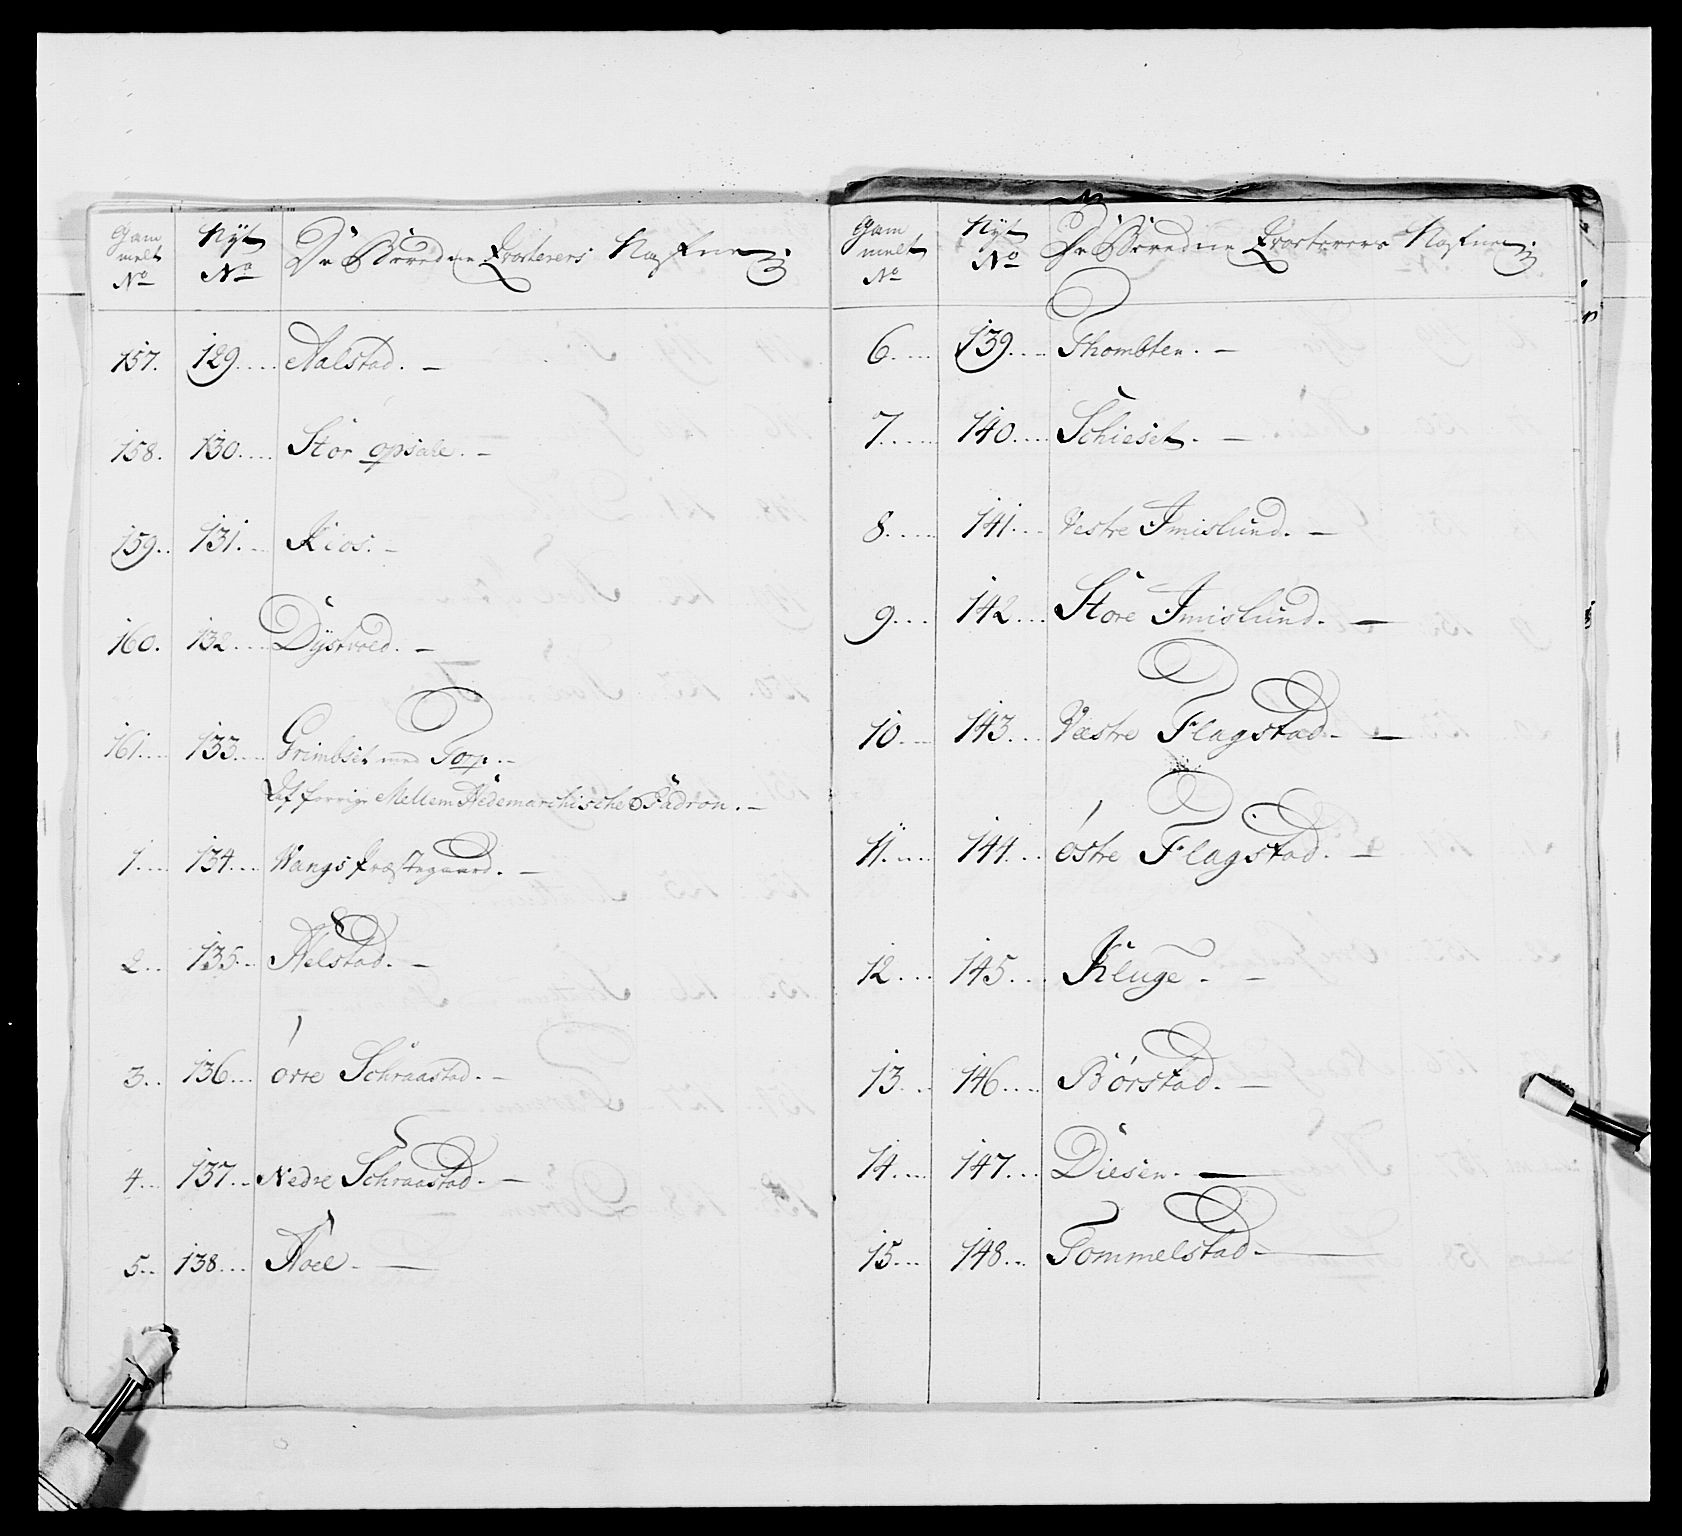 Gam melt No Nÿt No De Beredne Qvarterers Nafne
157. 129.... Aalstad. –
158. 130.... Stor opsale. –
159.. 131... Kios. –
160. 132.... Dÿstvold. –
161.... 133.... Grimbset med Torp. –
Af forrige Mellem Hedemarchische Esqvadron. –
1.... 134.... Wangs Præstegaard. –
2.. 135... Helstad. –
3.. 136... øvre Schraastad. –
4... 137.. Nedre Schraastad. –
5.. 138... Hoel. –
Gam melt No Nÿt No De Beredne Qvarterers Nafne
6..... 139.... Thombten. –
7...... 140.... Schieset. –
8..... 141.... Vestre Imislund. –
9.... 142.... Store Imislund. –
10.... 143.... Væstre Flagstad. –
11..... 144.... østre Flagstad. –
12.... 145.... Kluge. –
13... 146.... Børstad. –
14.... 147.... Diesen. –
15.... 148... Tommelstad. –